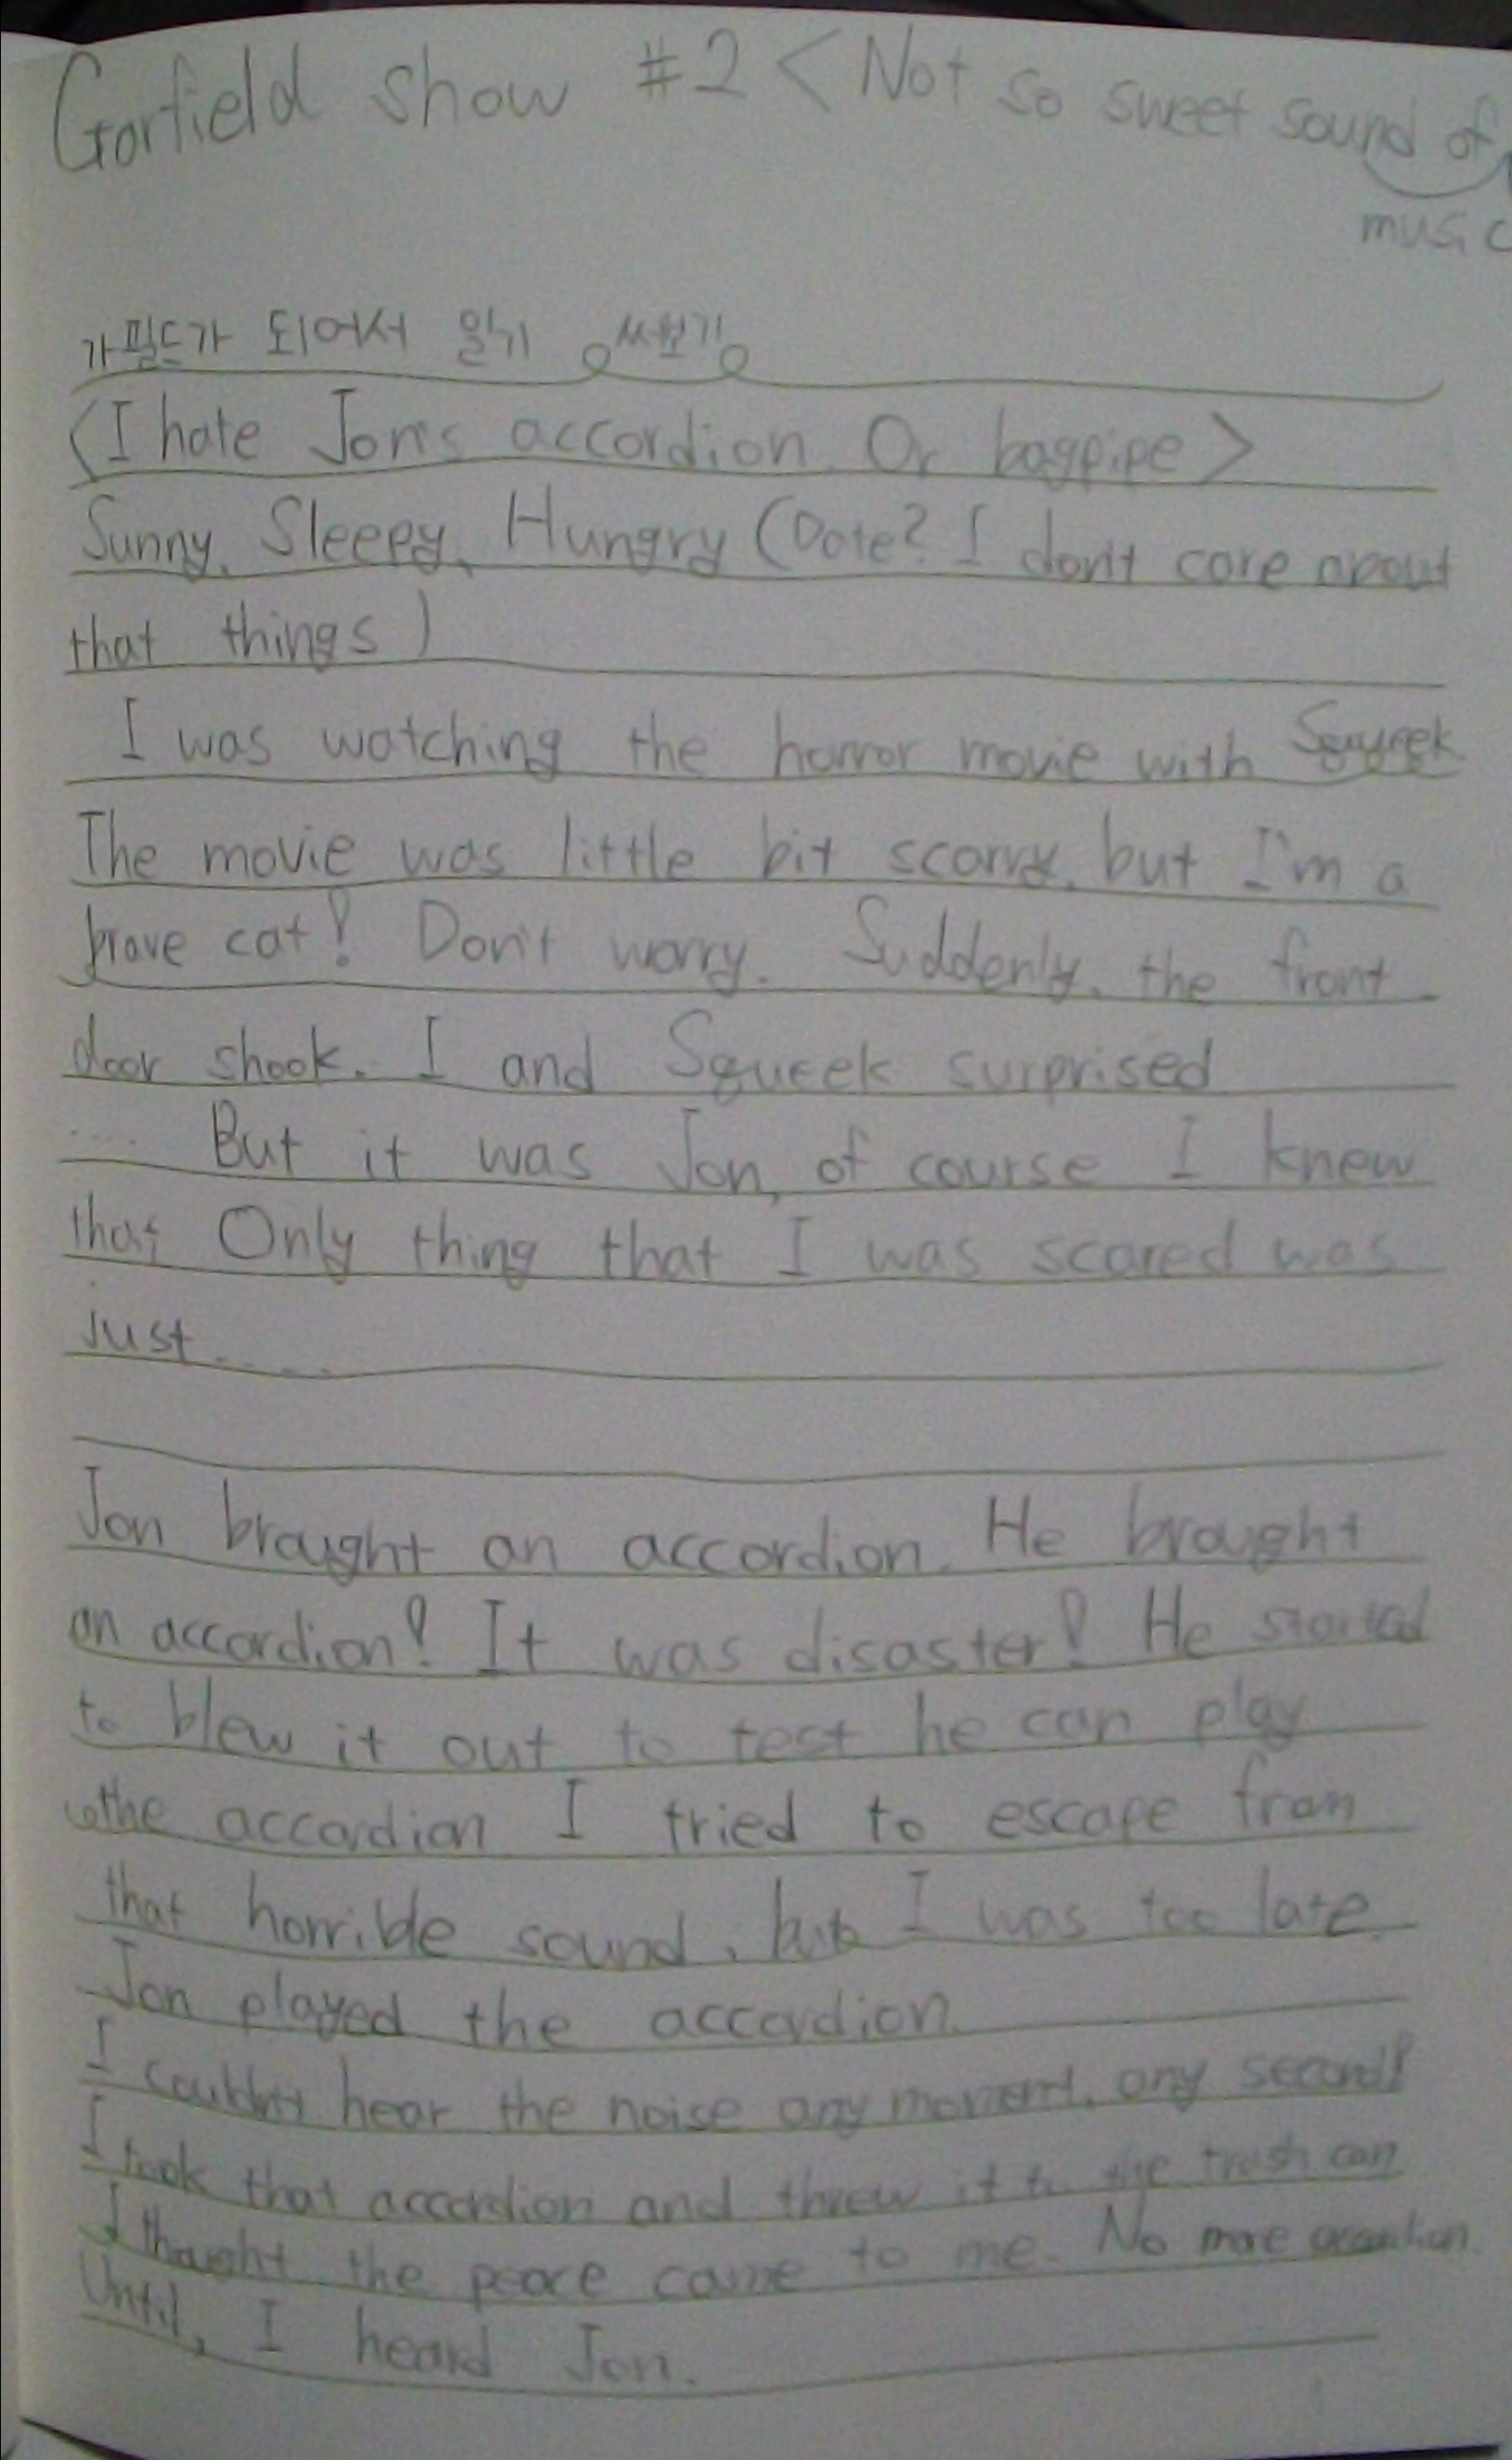 Garfield show #2 < Not so sweet sound of
music
가필드가 되어서 일기 써보기
<I hate Jon's accordion. Or bagpipe>
Sunny, Sleepy, Hungry (Date? I don't care about
that things)
I was watching the horror movie with Squeek
The movie was little bit scarry, but I'm a
brave cat! Don't worry. Suddenly, the front
door shook. I and Squeek surprised
.... But it was Jon, of course I knew
that. Only thing that I was scared was
just .....
Jon braught an accordion. He braught
an accordion! It was disaster! He started
to blew it out to test he can play
the accordion I tried to escape from
that horrible sound, but I was too late.
Jon played the accordion.
I couldn't hear the noise any moment, any second!
I took that accordion and threw it to the trash can
I thought the peace came to me. No more accordion
Until, I heard Jon.